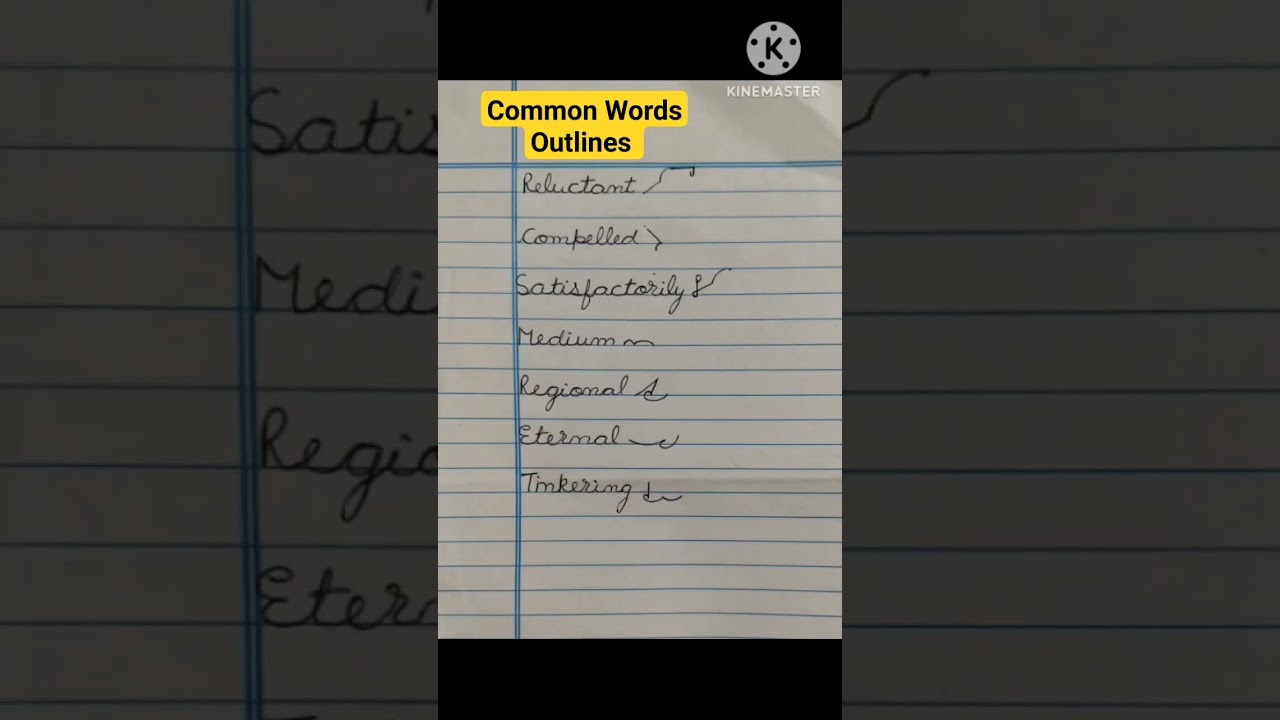 KINEMASTER
Common Words
Outlines
Reluctant
Compelled
Satisfactorily
Medium
Regional
Eternal
Tinkering
Satis
Mediu
Regio
Eter